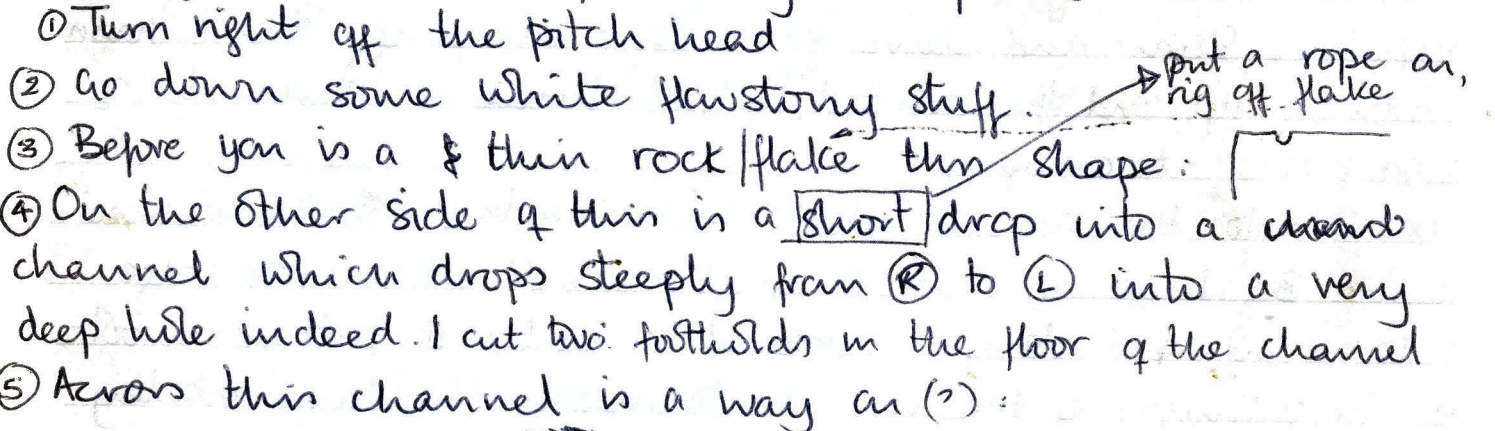 ① Turn right off the pitch head
② Go down some white flowstony stuff.
put a rope on,
rig off flake
③ Before you is a thin rock/flake this shape:
④ On the other side of this is a short drop into a
channel which drops steeply from Ⓡ to Ⓛ into a very
deep hole indeed. I cut two footholds in the floor of the channel
⑤ Across this channel is a way on (?):